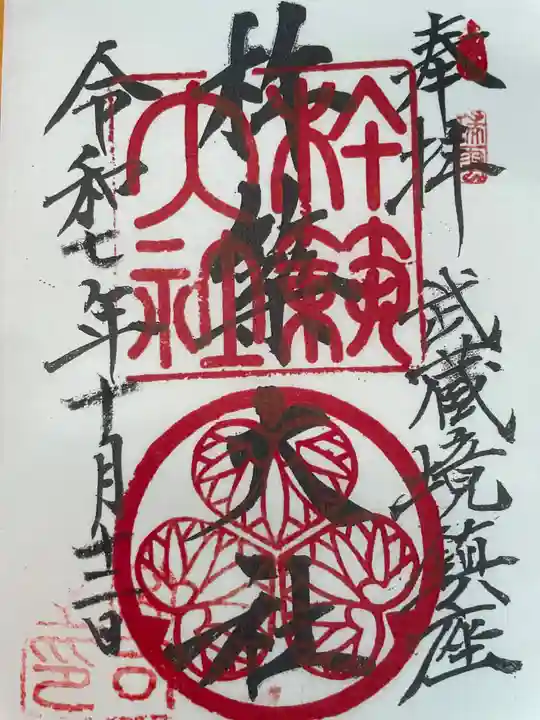 奉拝
武蔵境鎮座
杵築大社
杵築大社
令和七年十月十二日